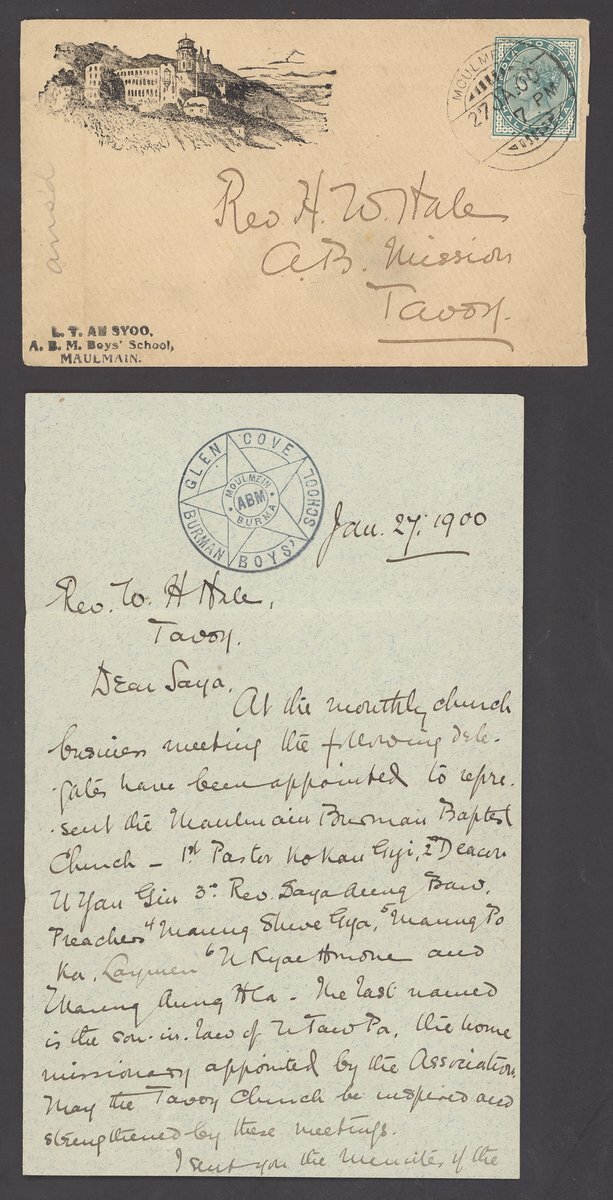 MOULME
27 JA.00
7 PM
Rev. H. W. Hale
A.B. Mission
Tavoy.
L. T. AH SYOO,
A. B. M. Boys' School,
MAULMAIN.
GLEN COVE SCHOOL
BURMAN BOYS'
MOULMEIN
ABM
BURMA
Jan. 27, 1900
Rev. W. H Hale,
Tavoy.
Dear Saya,
At the monthly church
business meeting the following dele-
gates have been appointed to repre-
sent the Maulmain Burman Baptist
Church – 1st Pastor Ko Kau Gyi, 2nd Deacon
U Yan Gin 3rd Rev. Saya Aung Baw,
Preachers 4 Maung Shwe Gya, 5 Maung Po
Ka, Laymen 6 U Kyae Hmone and
Maung Aung Hla – The last named
is the son-in-law of U Taw Pa, the home
missionary appointed by the Association.
May the Tavoy Church be inspired and
strengthened by these meetings.
I sent you the Minutes of the